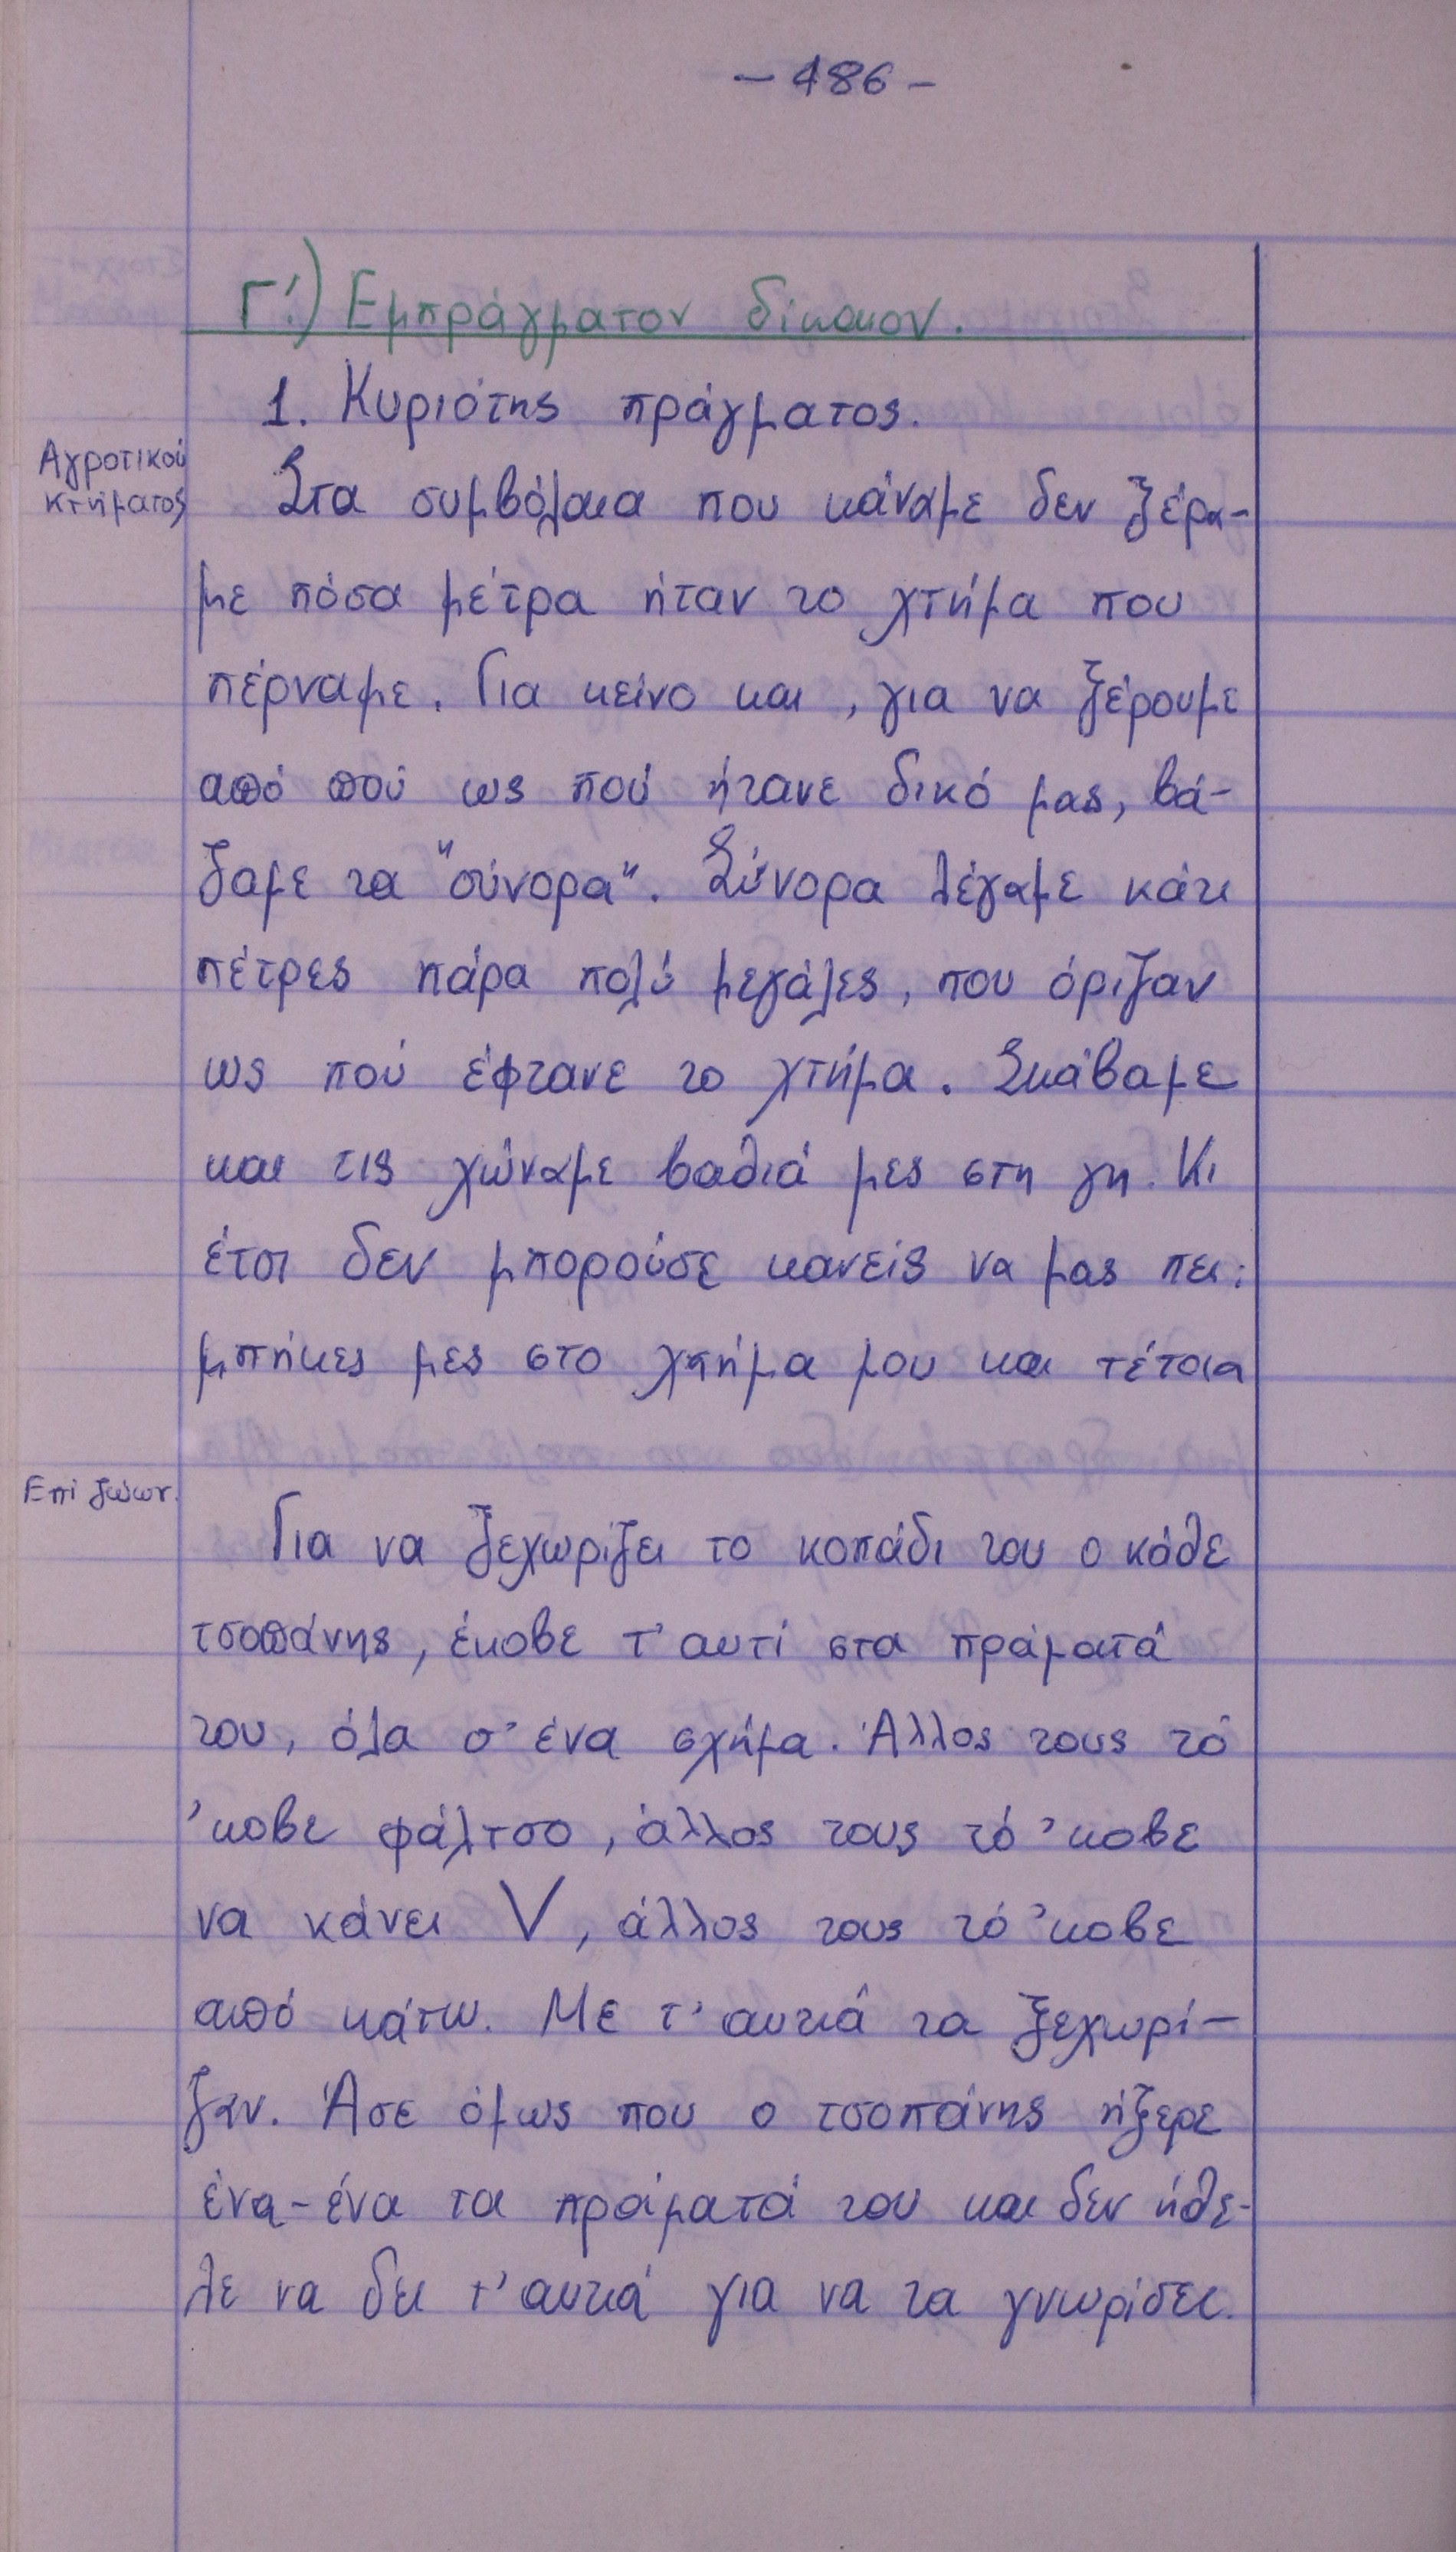 - 486 -
Γ΄.) Εμπράγματον δίκαιον.
1. Κυριότης πράγματος.
Αγροτικού
κτήματος
Στα συμβόλαια που κάναμε δεν ξέρα-
με πόσα μέτρα ήταν το χτήμα που
πέρναμε. Για κείνο και, για να ξέρουμε
από πού ως πού ήτανε δικό μας, βά-
ζαμε τα "σύνορα". Σύνορα λέγαμε κάτι
πέτρες πάρα πολύ μεγάλες, που όριζαν
ως πού έφτανε το χτήμα. Σκάβαμε
και τις χώναμε βαθιά μες στη γη. Κι
έτσι δεν μπορούσε κανείς να μας πει:
μπήκες μες στο χτήμα μου και τέτοια
Επί ζώων.
Για να ξεχωρίζει το κοπάδι του ο κάθε
τσοπάνης, έκοβε τ' αυτί στα πράματά
του, όλα σ' ένα σχήμα. Άλλος τους τό
'κοβε φάλτσο, άλλος τους τό 'κοβε
να κάνει V, άλλος τους τό 'κοβε
από κάτω. Με τ' αυτιά τα ξεχωρί-
ζαν. Άσε όμως που ο τσοπάνης ήξερε
ένα-ένα τα πράματά του και δεν ήθε-
λε να δει τ' αυτιά για να τα γνωρίσει.